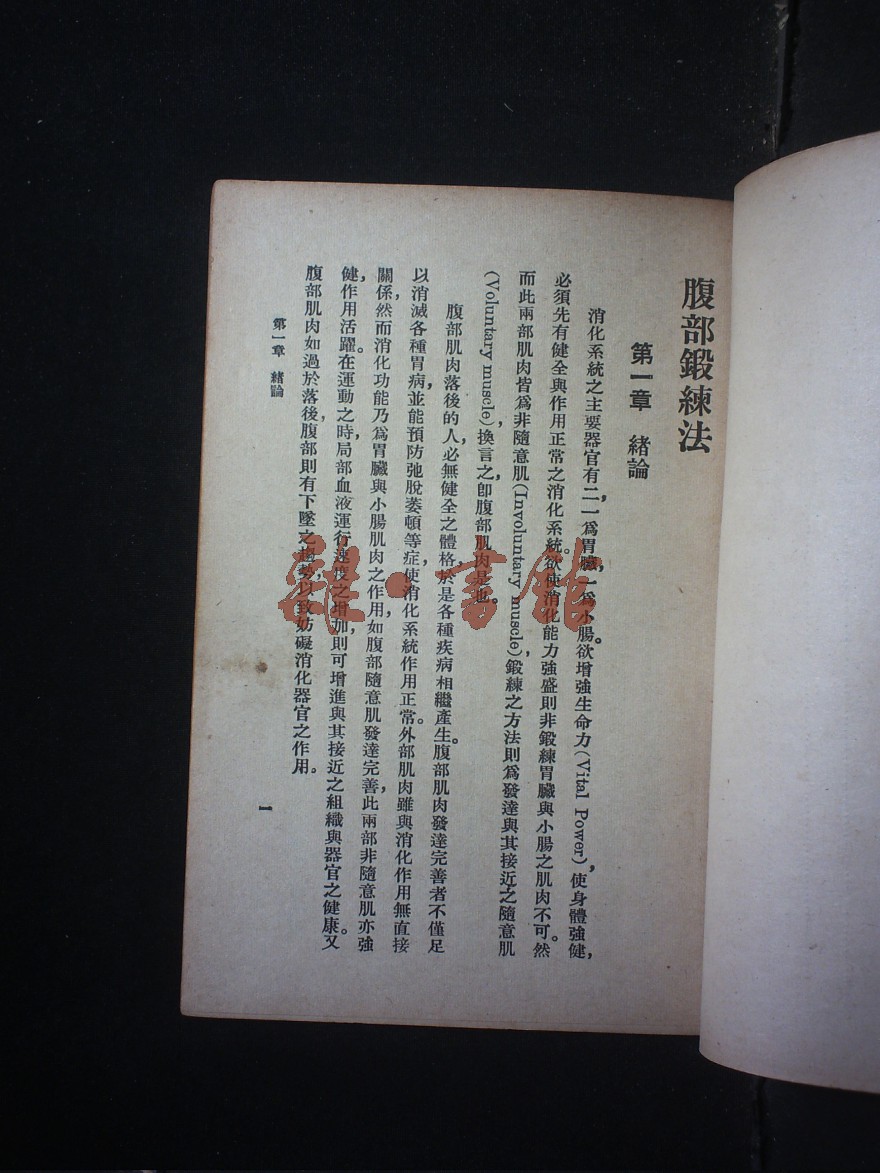 腹部鍛練法
第一章 緒論
消化系統之主要器官有二,一爲胃臟,一爲小腸。欲增強生命力(Vital Power),使身體強健,
必須先有健全與作用正常之消化系統。欲使消化能力強盛則非鍛練胃臟與小腸之肌肉不可。然
而此兩部肌肉皆爲非隨意肌(Involuntary muscle),鍛練之方法則爲發達與其接近之隨意肌
(Voluntary muscle),換言之,卽腹部肌肉是也。
腹部肌肉落後的人,必無健全之體格,於是各種疾病相繼產生。腹部肌肉發達完善者不僅足
以消滅各種胃病,並能預防弛脫萎頓等症,使消化系統作用正常。外部肌肉雖與消化作用無直接
關係,然而消化功能乃爲胃臟與小腸肌肉之作用,如腹部隨意肌發達完善,此兩部非隨意肌亦強
健,作用活躍。在運動之時,局部血液運行速度之增加,則可增進與其接近之組織與器官之健康。又
腹部肌肉如過於落後,腹部則有下墜之趨勢,以致妨礙消化器官之作用。
第一章 緒論
一
雜·書館